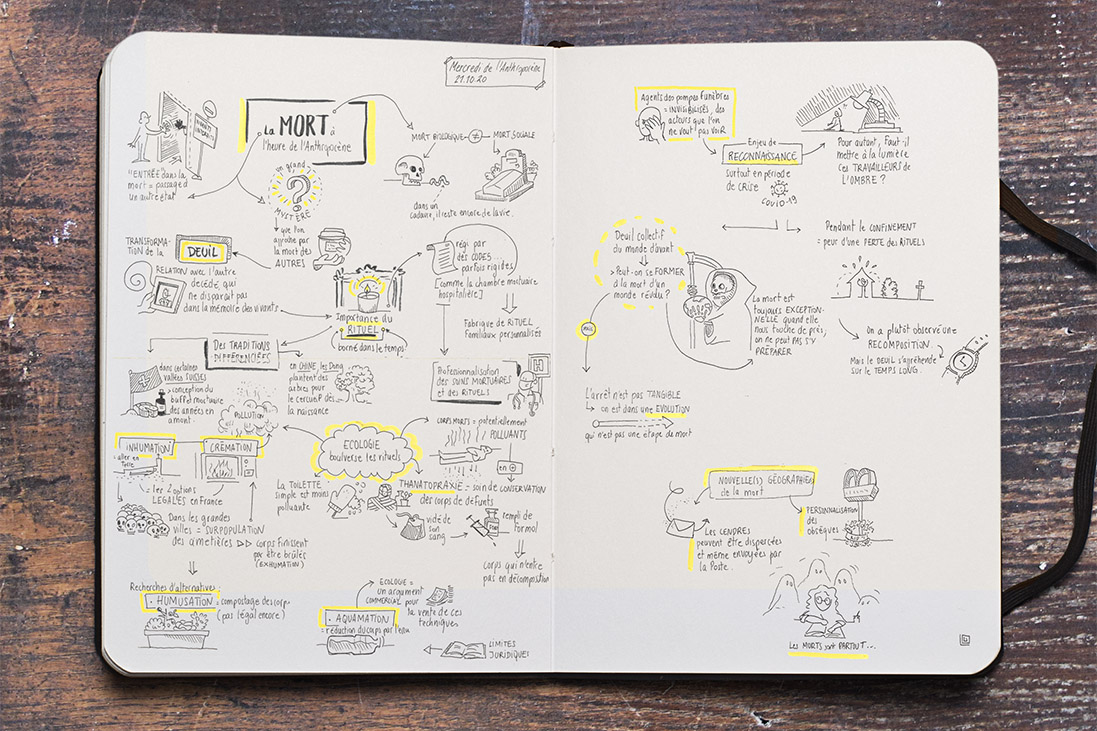 Mercredi de l'Anthropocène
21.10.20
La MORT à
l'heure de l'Anthropocène
"ENTRÉE dans la
mort = passage d'
un autre état"
un grand
?
MYSTÈRE
que l'on
approche par
la mort des
AUTRES
MORT BIOLOGIQUE ≠ MORT SOCIALE
dans un
cadavre, il reste encore de la vie.
TRANSFORMA-
TION de la
DEUIL
RELATION avec l'autre
décédé, qui
ne disparaît pas
dans la mémoire des vivants
Importance du
RITUEL
borné dans le temps
régi par
des CODES...
parfois rigides
[comme la chambre mortuaire
hospitalière]
Fabrique de RITUEL
familiaux personnalisés
Professionnalisation
des SOINS MORTUAIRES
et des RITUELS
H
Des TRADITIONS
DIFFÉRENCIÉES
dans certaines
vallées SUISSES
> conception du
buffet mortuaire
des années en
amont.
en CHINE, les Dong
plantent des
arbres pour
le cercueil dès
la naissance
POLLUTION
ECOLOGIE
boulverse les rituels
CORPS MORTS = potentiellement
POLLUANTS
INHUMATION
= aller en
Terre
CRÉMATION
= les 2 options
LEGALES en France
Dans les grandes
villes = SURPOPULATION
des cimetières ▷▷ corps finissent
par être brûlés
(EXHUMATION)
La TOILETTE
simple est moins
polluante
en
THANATOPRAXIE = soin de CONSERVATION
des corps de défunts
vidé de
son
sang
rempli de
formol
corps qui n'entre
pas en décomposition
Recherches d'alternatives :
• HUMUSATION = compostage des corps
(pas légal encore)
ECOLOGIE =
un argument
COMMERCIAL pour
la vente de ces
techniques
• AQUAMATION
= réduction du corps par l'eau
LIMITES
JURIDIQUES
Agents des pompes funèbres
= INVISIBILISÉS, des
acteurs que l'on
ne veut pas voir
Enjeu de
RECONNAISSANCE
surtout en période
de CRISE
COVID-19
Pour autant, faut-il
mettre à la lumière
ces TRAVAILLEURS de
l'OMBRE ?
Pendant le CONFINEMENT
= peur d'une PERTE des RITUELS
On a plutôt observé une
RECOMPOSITION.
Mais le DEUIL s'appréhende
sur le TEMPS LONG.
Deuil collectif
du monde d'avant
> Peut-on se FORMER
à la mort d'un
monde révolu ?
La mort est
toujours EXCEPTION-
NELLE quand elle
nous touche de près,
on ne peut PAS S'Y
PRÉPARER
MAIS
L'arrêt n'est pas TANGIBLE
on est dans une EVOLUTION
qui n'est pas une étape de mort
NOUVELLE(S) GÉOGRAPHIE(S)
de la mort
Les CENDRES
peuvent être dispersées
et même envoyées par
la Poste.
PERSONNALISATION
des
obsèques
Les MORTS sont PARTOUT...